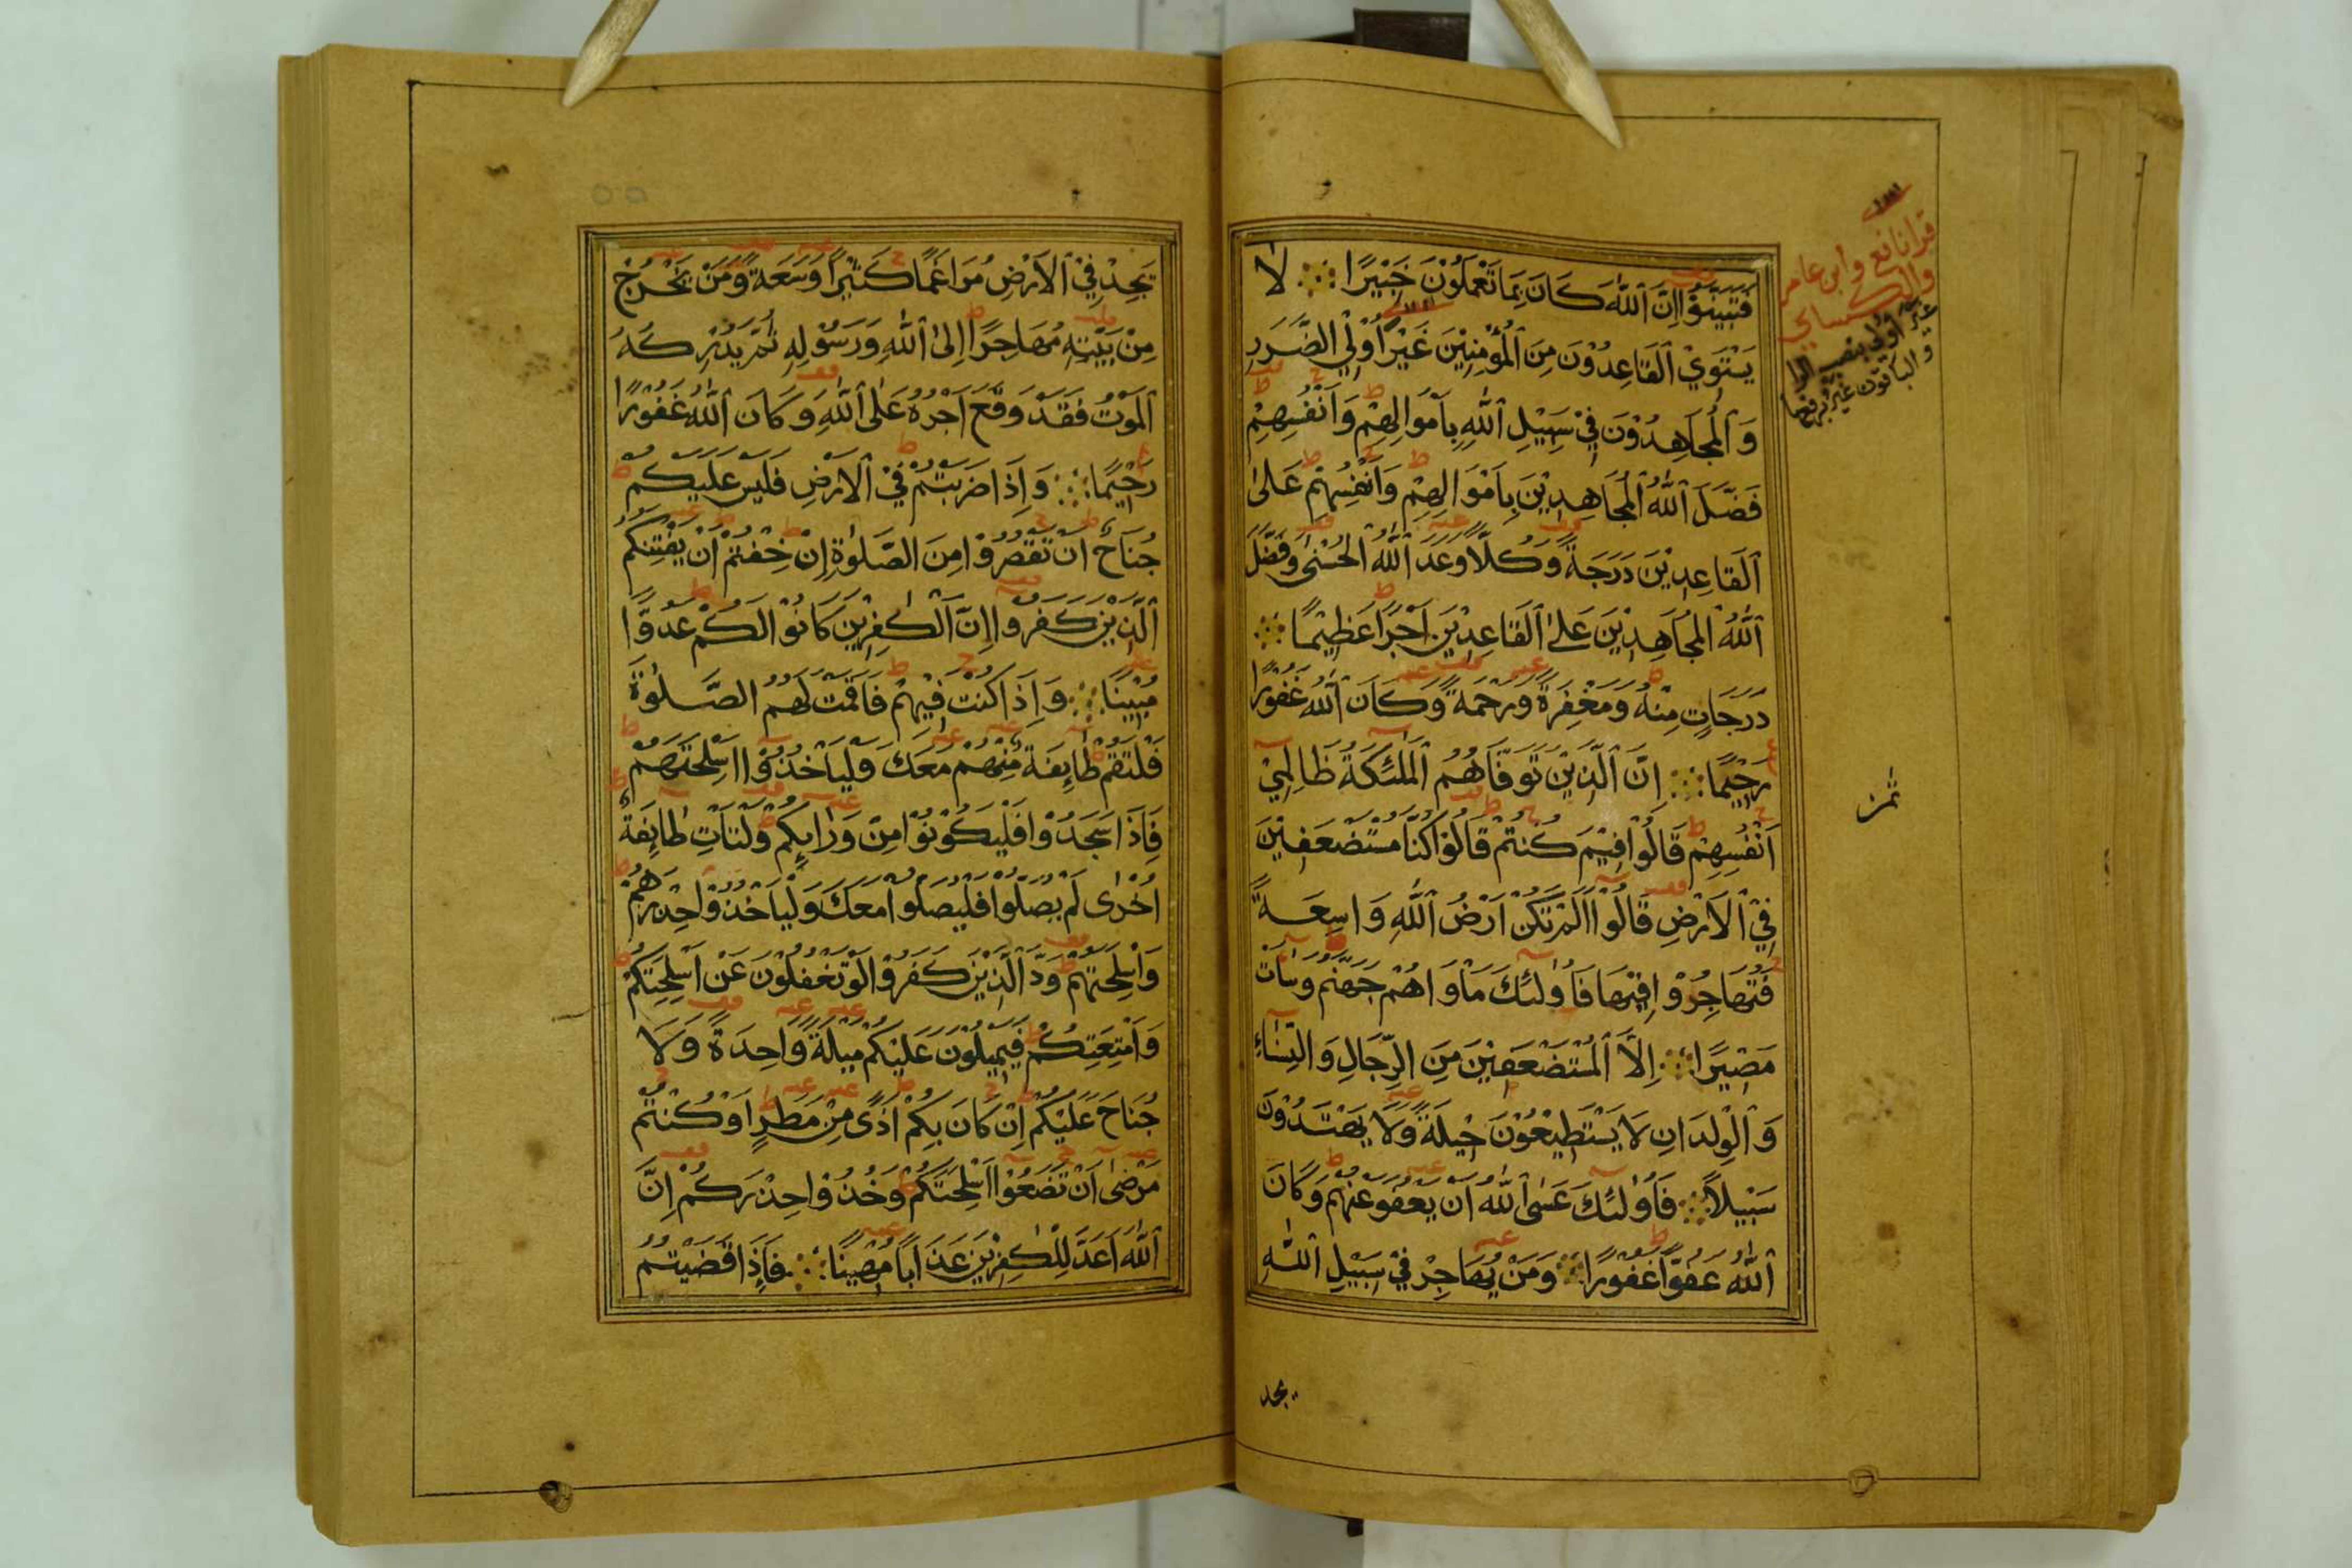 فَتَبَيَّنُوْا اِنَّ اللّٰهَ كَانَ بِمَا تَعْمَلُوْنَ خَبِيْرًا لَا
يَسْتَوِيْ الْقَاعِدُوْنَ مِنَ الْمُؤْمِنِيْنَ غَيْرُ اُوْلِي الضَّرَرِ
وَالْمُجَاهِدُوْنَ فِيْ سَبِيْلِ اللّٰهِ بِاَمْوَالِهِمْ وَاَنْفُسِهِمْ
فَضَّلَ اللّٰهُ الْمُجَاهِدِيْنَ بِاَمْوَالِهِمْ وَاَنْفُسِهِمْ عَلَى
الْقَاعِدِيْنَ دَرَجَةً وَكُلًّا وَعَدَ اللّٰهُ الْحُسْنٰى وَفَضَّلَ
اللّٰهُ الْمُجَاهِدِيْنَ عَلَى الْقَاعِدِيْنَ اَجْرًا عَظِيْمًا
دَرَجَاتٍ مِنْهُ وَمَغْفِرَةً وَرَحْمَةً وَكَانَ اللّٰهُ غَفُوْرًا
رَحِيْمًا اِنَّ الَّذِيْنَ تَوَفَّاهُمُ الْمَلٰئِكَةُ ظَالِمِيْ
اَنْفُسِهِمْ قَالُوْا فِيْمَ كُنْتُمْ قَالُوْا كُنَّا مُسْتَضْعَفِيْنَ
فِيْ الْاَرْضِ قَالُوْا اَلَمْ تَكُنْ اَرْضُ اللّٰهِ وَاسِعَةً
فَتُهَاجِرُوْا فِيْهَا فَاُولٰئِكَ مَاْوَاهُمْ جَهَنَّمُ وَسَاءَتْ
مَصِيْرًا اِلَّا الْمُسْتَضْعَفِيْنَ مِنَ الرِّجَالِ وَالنِّسَاءِ
وَالْوِلْدَانِ لَا يَسْتَطِيْعُوْنَ حِيْلَةً وَلَا يَهْتَدُوْنَ
سَبِيْلًا فَاُولٰئِكَ عَسَى اللّٰهُ اَنْ يَعْفُوَ عَنْهُمْ وَكَانَ
اللّٰهُ عَفُوًّا غَفُوْرًا وَمَنْ يُهَاجِرْ فِيْ سَبِيْلِ اللّٰهِ
يجد
قرا نافع وابن عامر
والكسايي
غيرَ اولي بنصب الرا
والباقون غيرُ برفعها
ثمن
يَجِدْ فِيْ الْاَرْضِ مُرَاغَمًا كَثِيْرًا وَسَعَةً وَمَنْ يَخْرُجْ
مِنْ بَيْتِهِ مُهَاجِرًا اِلَى اللّٰهِ وَرَسُوْلِهِ ثُمَّ يُدْرِكْهُ
الْمَوْتُ فَقَدْ وَقَعَ اَجْرُهُ عَلَى اللّٰهِ وَكَانَ اللّٰهُ غَفُوْرًا
رَحِيْمًا وَاِذَا ضَرَبْتُمْ فِيْ الْاَرْضِ فَلَيْسَ عَلَيْكُمْ
جُنَاحٌ اَنْ تَقْصُرُوْا مِنَ الصَّلٰوةِ اِنْ خِفْتُمْ اَنْ يَفْتِنَكُمُ
الَّذِيْنَ كَفَرُوا اِنَّ الْكٰفِرِيْنَ كَانُوْا لَكُمْ عَدُوًّا
مُبِيْنًا وَاِذَا كُنْتَ فِيْهِمْ فَاَقَمْتَ لَهُمُ الصَّلٰوةَ
فَلْتَقُمْ طَائِفَةٌ مِنْهُمْ مَعَكَ وَلْيَاْخُذُوْا اَسْلِحَتَهُمْ
فَاِذَا سَجَدُوْا فَلْيَكُوْنُوْا مِنْ وَرَائِكُمْ وَلْتَاْتِ طَائِفَةٌ
اُخْرٰى لَمْ يُصَلُّوْا فَلْيُصَلُّوْا مَعَكَ وَلْيَاْخُذُوْا حِذْرَهُمْ
وَاَسْلِحَتَهُمْ وَدَّ الَّذِيْنَ كَفَرُوْا لَوْ تَغْفُلُوْنَ عَنْ اَسْلِحَتِكُمْ
وَاَمْتِعَتِكُمْ فَيَمِيْلُوْنَ عَلَيْكُمْ مَيْلَةً وَاحِدَةً وَلَا
جُنَاحَ عَلَيْكُمْ اِنْ كَانَ بِكُمْ اَذًى مِنْ مَطَرٍ اَوْ كُنْتُمْ
مَرْضٰى اَنْ تَضَعُوْا اَسْلِحَتَكُمْ وَخُذُوْا حِذْرَكُمْ اِنَّ
اللّٰهَ اَعَدَّ لِلْكٰفِرِيْنَ عَذَابًا مُهِيْنًا فَاِذَا قَضَيْتُمُ